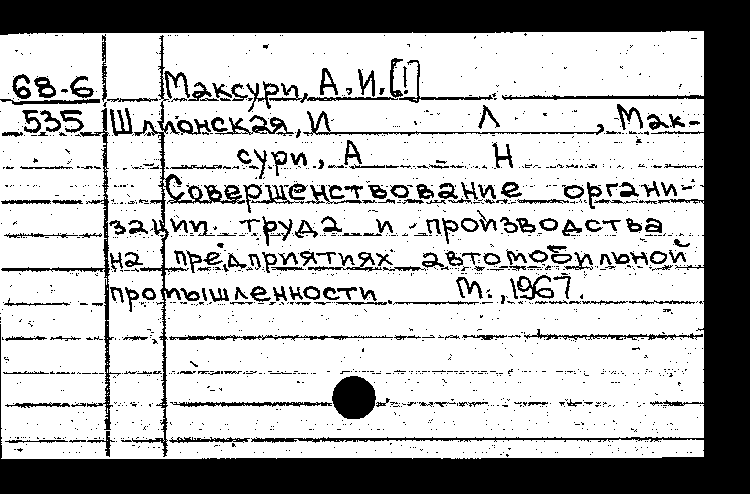 68-6 Максури, А.И.[!]
535 Шлионская, И Л , Мак-
сури, А Н
Совершенствование органи-
зации труда и производства
на предприятиях автомобильной
промышленности М., 1967.